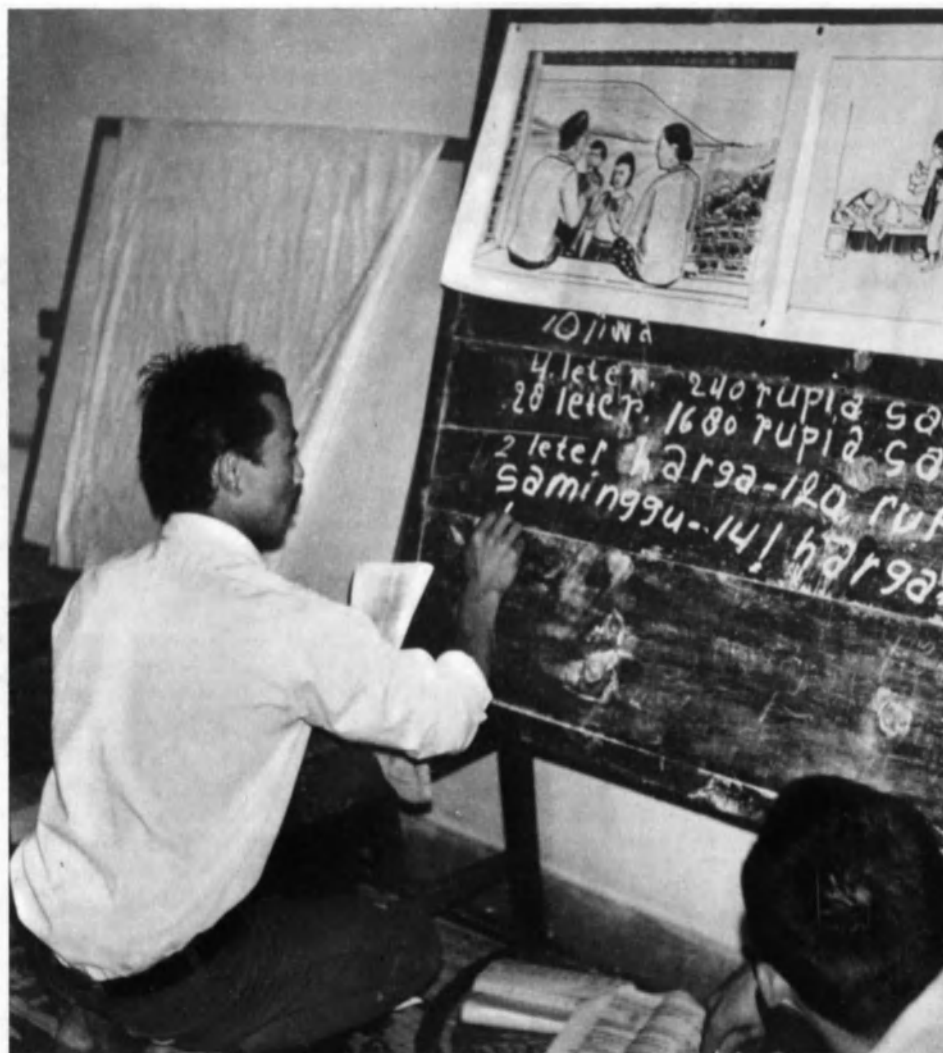 10 jiwa
4. leter. 240 rupia sa
28 leter. 1680 rupia sa
2 leter harga-120 rup
saminggu-.14! harga